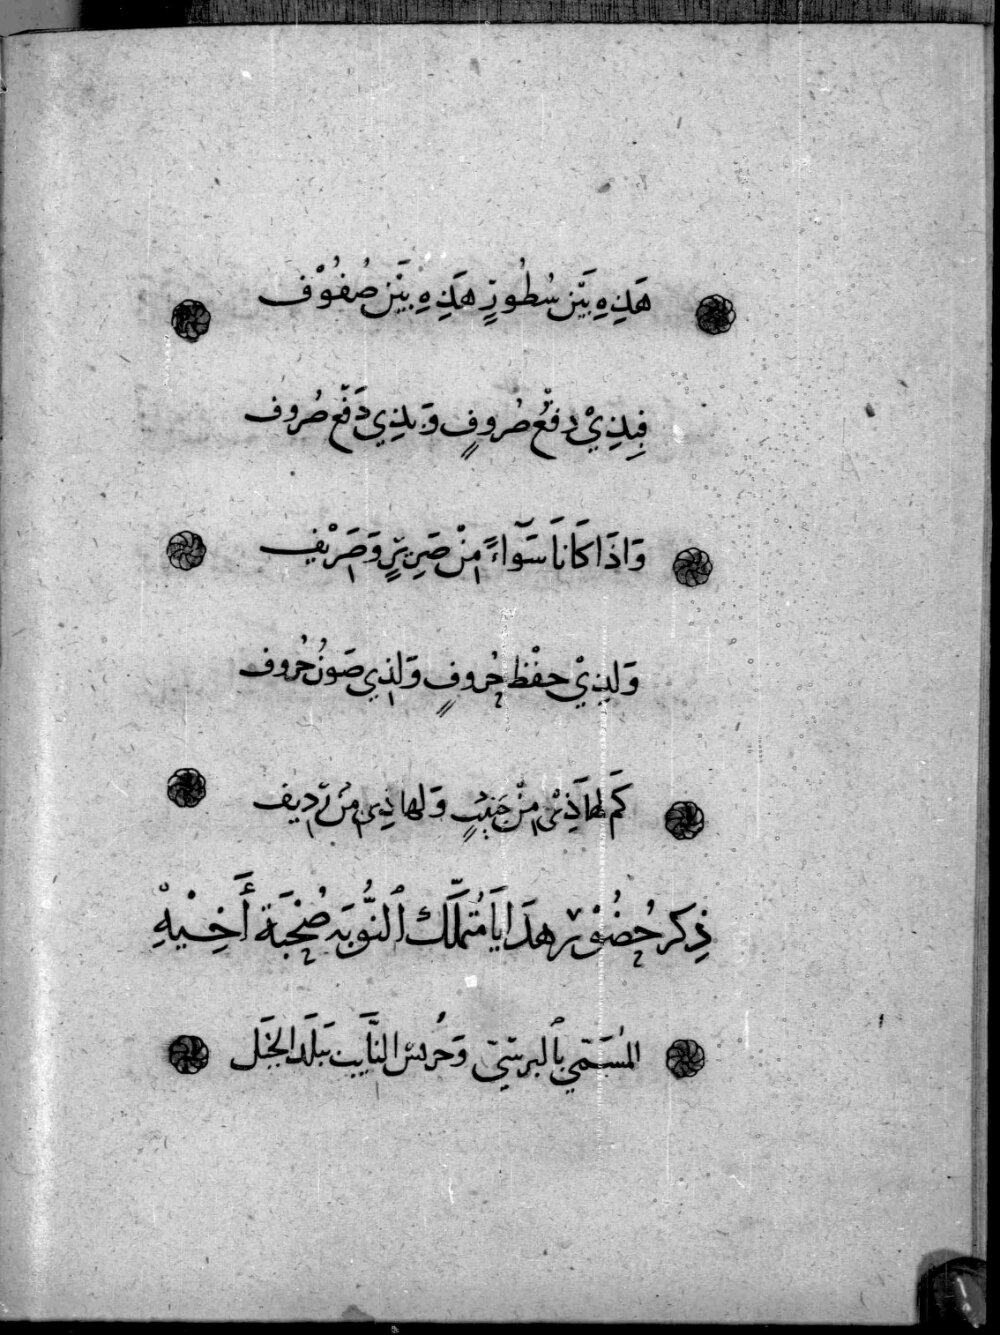 هَذِهِ بَيْنَ سُطُورٍ هَذِهِ بَيْنَ صُفُوْف
فَبِذِيْ دَفْعُ صُروفٍ وَبِذِي دَفْع صُروف
وَاذَا كَانَا سَوَآءً مِنْ صَرِيرٍ وَصَرِيْف
وَلِذِيْ حِفْظ حُروفٍ وَلِذِي صَونُ حُروف
كَم لهَا ذِيْ مِنْ جَنِيْبٍ وَلها ذِي مِنْ رَديف
ذِكر حُضُوْر هَدَايَا مُتملِّك ٱلنُّوبَه صُحْبَة أَخِيْهِ
المُسَمّي بٱلبرسّي وَحُريْس النَّايب ببَلَد الجَبَل